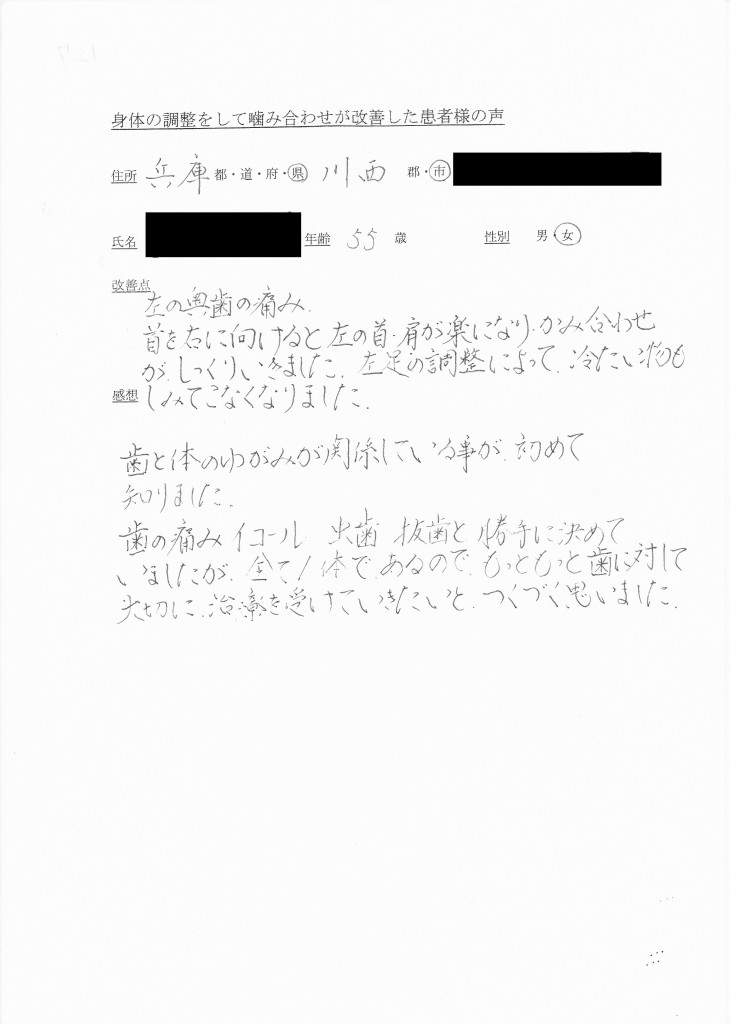 身体の調整をして噛み合わせが改善した患者様の声
住所 兵庫 都・道・府・県 川西 郡・市
氏名 年齢 55 歳 性別 男・女
改善点
左の奥歯の痛み.
首を右に向けると左の首・肩が楽になり、かみ合わせ
が、しっくりいきました。左足の調整によって、冷たい物も
感想 しみてこなくなりました。
歯と体のゆがみが関係している事が、初めて
知りました。
歯の痛みイコール 虫歯 抜歯と勝手に決めて
いましたが、全て1体であるので、もっともっと歯に対して
大切に、治療を受けていきたいと、つくづく思いました。